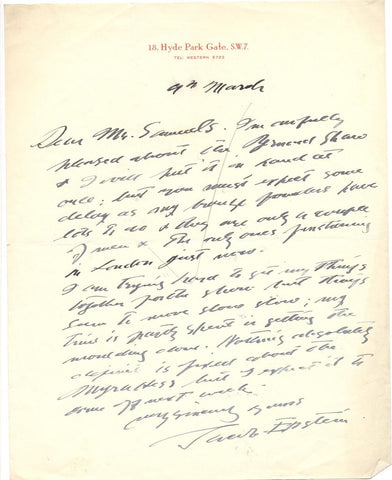 18, Hyde Park Gate, S.W.7.
TEL: WESTERN 5722
9th March
Dear Mr. Samuels. I'm awfully
pleased about the Bernard Shaw
& I will put it in hand at
once; but you must expect some
delay as my bronze founders have
lots to do & they are only a couple
of men & the only ones functioning
in London just now.
I am trying hard to get my things
together for the show but things
seem to move slow slow; my
time is partly spent in getting the
moulding done. Nothing absolutely
definite is fixed about the
Myra Hess but I expect it to
come off next week.
very sincerely yours
Jacob Epstein